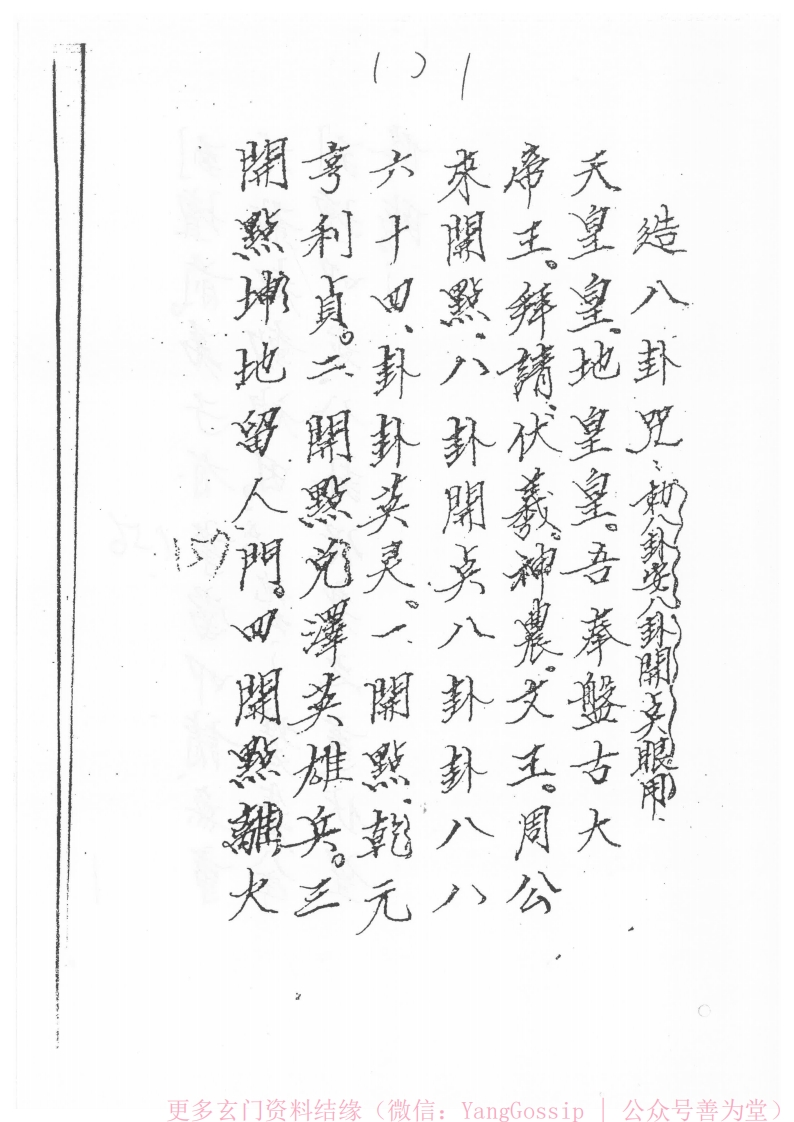 造八卦咒、勅八卦安八卦開点眼用、
天皇皇。地皇皇。吾奉盤古大
帝王。拜請、伏羲。神農。文王。周公
來開點、八卦開点八卦卦八八
六十四、卦卦英灵。一、開點、乾元
亨利貞。二開點兌澤英雄兵。三
開點坤地留人門。四開點離火
157
更多玄门资料结缘（微信：YangGossip | 公众号善为堂）